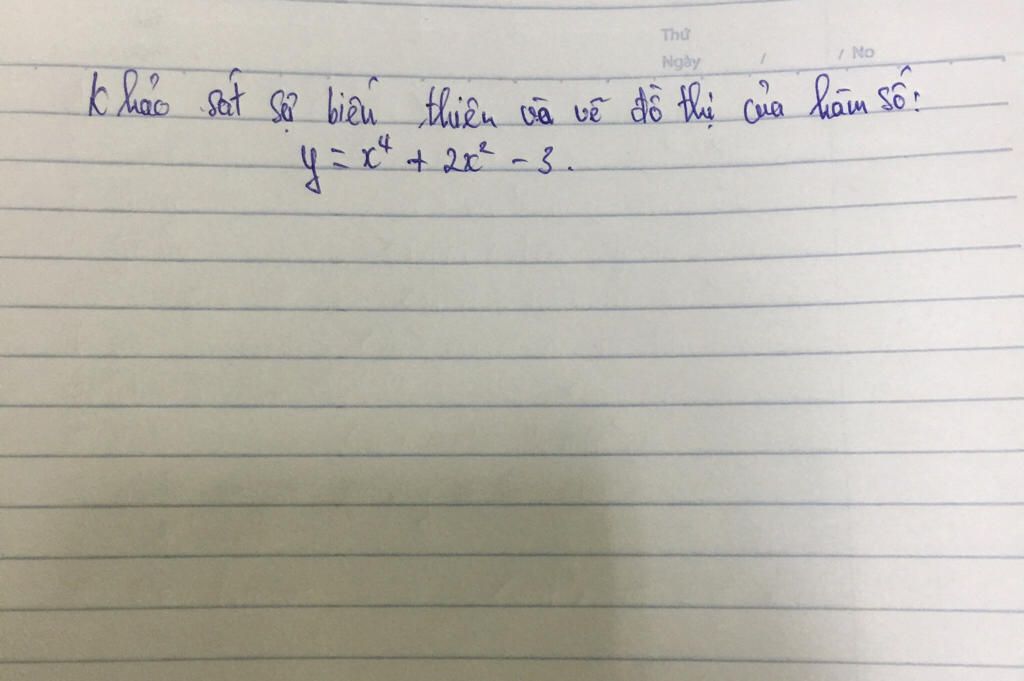 Thứ
Ngày / / No
Khảo sát sự biến thiên và vẽ đồ thị của hàm số:
y = x⁴ + 2x² - 3.